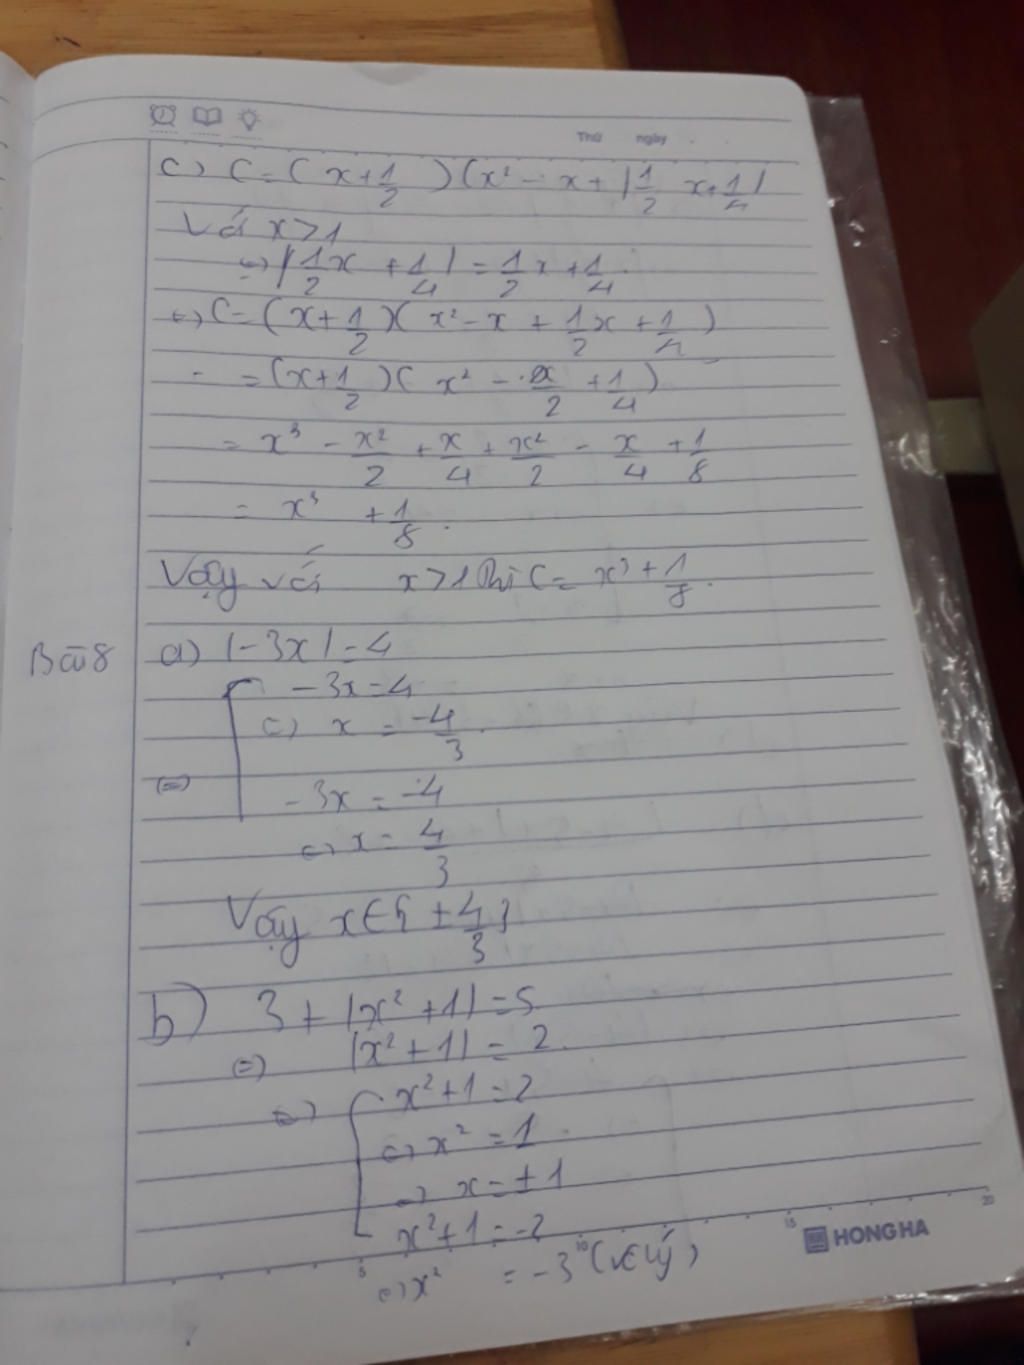 Thứ ngày
c) C = (x + 1/2)(x² - x + |1/2 x + 1/4|
Với x > 1
<=> |1/2 x + 1/4| = 1/2 x + 1/4
<=> C = (x + 1/2)(x² - x + 1/2 x + 1/4)
= (x + 1/2)(x² - x/2 + 1/4)
= x³ - x²/2 + x/4 + x²/2 - x/4 + 1/8
= x³ + 1/8.
Vậy với x > 1 thì C = x³ + 1/8.
Bài 8 a) |-3x| = 4
-3x = 4
<=> x = -4/3.
<=>
-3x = -4
<=> x = 4/3
Vậy x ∈ { ± 4/3 }
b) 3 + |x² + 1| = 5
<=> |x² + 1| = 2.
<=> x² + 1 = 2
<=> x² = 1
<=> x = ± 1
x² + 1 = -2
<=> x² = -3 (vô lý)
5 10 15 20
HONG HA